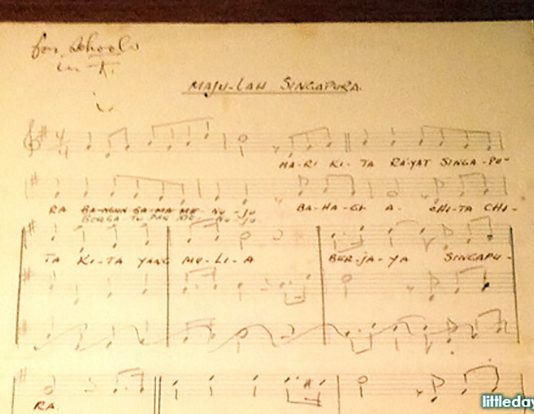 for Schools
in F.
MAJU-LAH SINGAPURA.
MA-RI KI-TA RA'YAT SINGA-PU-
RA BA-NGUN SA-MA ME-NU-JU BA-HA-GI A- CHI-TA CHI-
TA KI-TA YANG MU-LI-A BER-JA-YA SINGAPU-
RA.
littleday